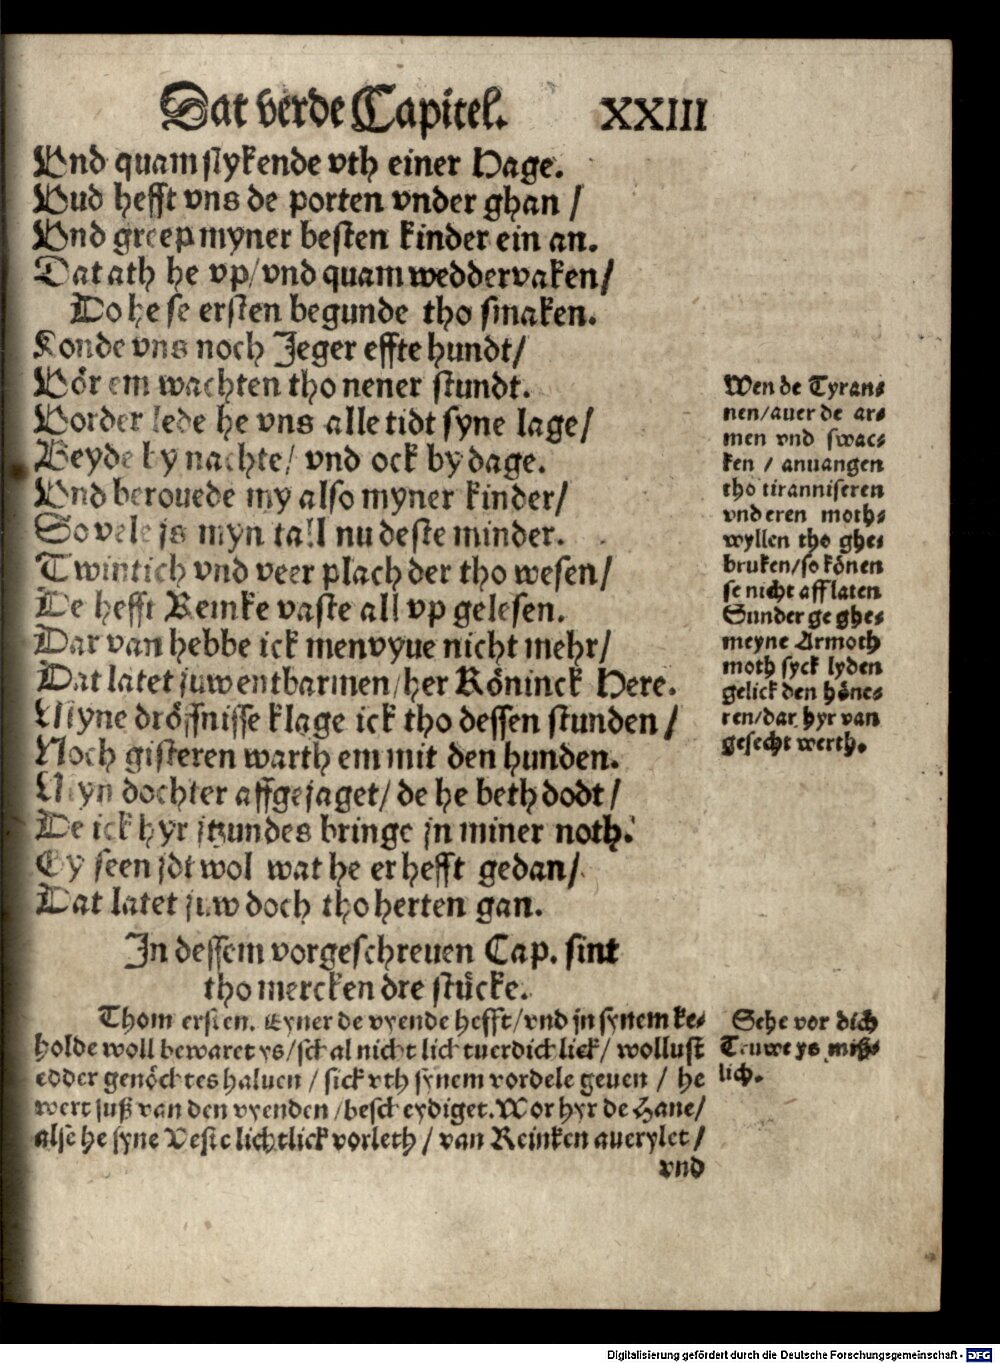 Dat verde Capitel. XXIII
Vnd quam slykende vth einer Hage.
Vud hefft vns de porten vnder ghan /
Vnd greep myner besten kinder ein an.
Dat ath he vp/ vnd quam wedder vaken/
Do he se ersten begunde tho smaken.
Konde vns noch Jeger effte hundt/
Vör em wachten tho nener stundt.
Vorder lede he vns alle tidt syne lage/
Beyde by nachte/ vnd ock by dage.
Vnd berouede my also myner kinder/
So vele js myn tall nu deste minder.
Twintich vnd veer plach der tho wesen/
De hefft Reinke vaste all vp gelesen.
Dar van hebbe ick men vyue nicht mehr/
Dat latet juw entbarmen/ her Köninck Here.
Myne dröffnisse klage ick tho dessen stunden /
Noch gisteren warth em mit den hunden.
Myn dochter affgejaget/ de he beth dodt /
De ick hyr jtzundes bringe jn miner noth.
Gy seen jdt wol wat he er hefft gedan/
Dat latet juw doch tho herten gan.
In dessem vorgeschreuen Cap. sint
tho mercken dre stücke.
Thom ersten. Eyner de vyende hefft/ vnd jn synem be⸗
holde woll bewaret ys/ schal nicht lichtuerdichliek/ wollust
edder genöchtes haluen / sick vth synem vordele geuen / he
wert suß van den vyenden / bescheydiget. Wor hyr de Hane/
alse he syne Veste lichtlick vorleth / van Reinken auerylet /
vnd
Wen de Tyran⸗
nen/ auer de ar⸗
men vnd swac⸗
ken / anuangen
tho tiranniseren
vnd eren moth⸗
wyllen tho ghe⸗
bruken/ so könen
se nicht afflaten
Sunder ge ghe⸗
meyne Armoth
moth syck lyden
gelick den höne⸗
ren/ dar hyr van
gesecht werth.
Sehe vor dich
Truwe ys miß⸗
lich.
Digitalisierung gefördert durch die Deutsche Forschungsgemeinschaft - DFG